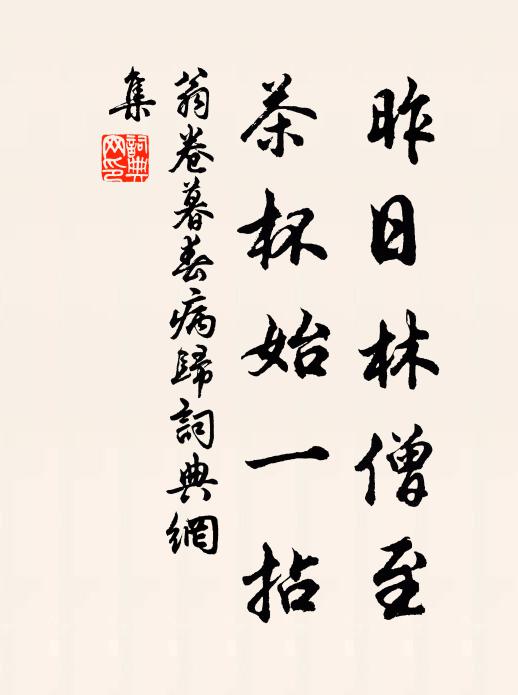 昨日林僧至
茶杯始一拈
翁卷暮春病歸詞典網
集
詞典网印